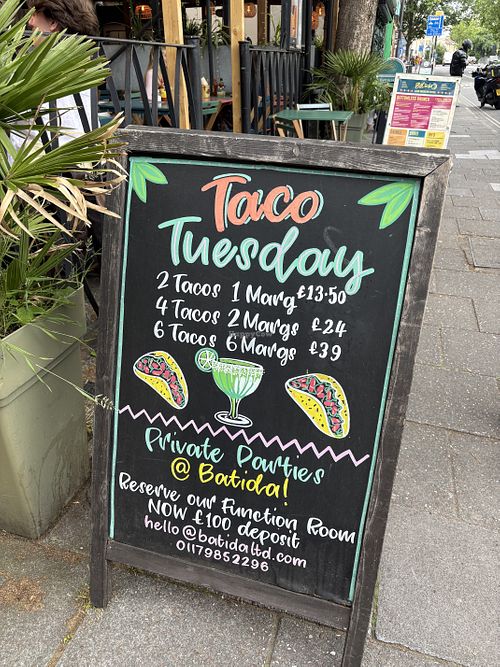 Taco
Tuesday
2 Tacos 1 Marg £13.50
4 Tacos 2 Margs £24
6 Tacos 6 Margs £39
Private Parties
@ Batida!
Reserve our Function Room
NOW £100 deposit
hello@batidaltd.com
01179852296